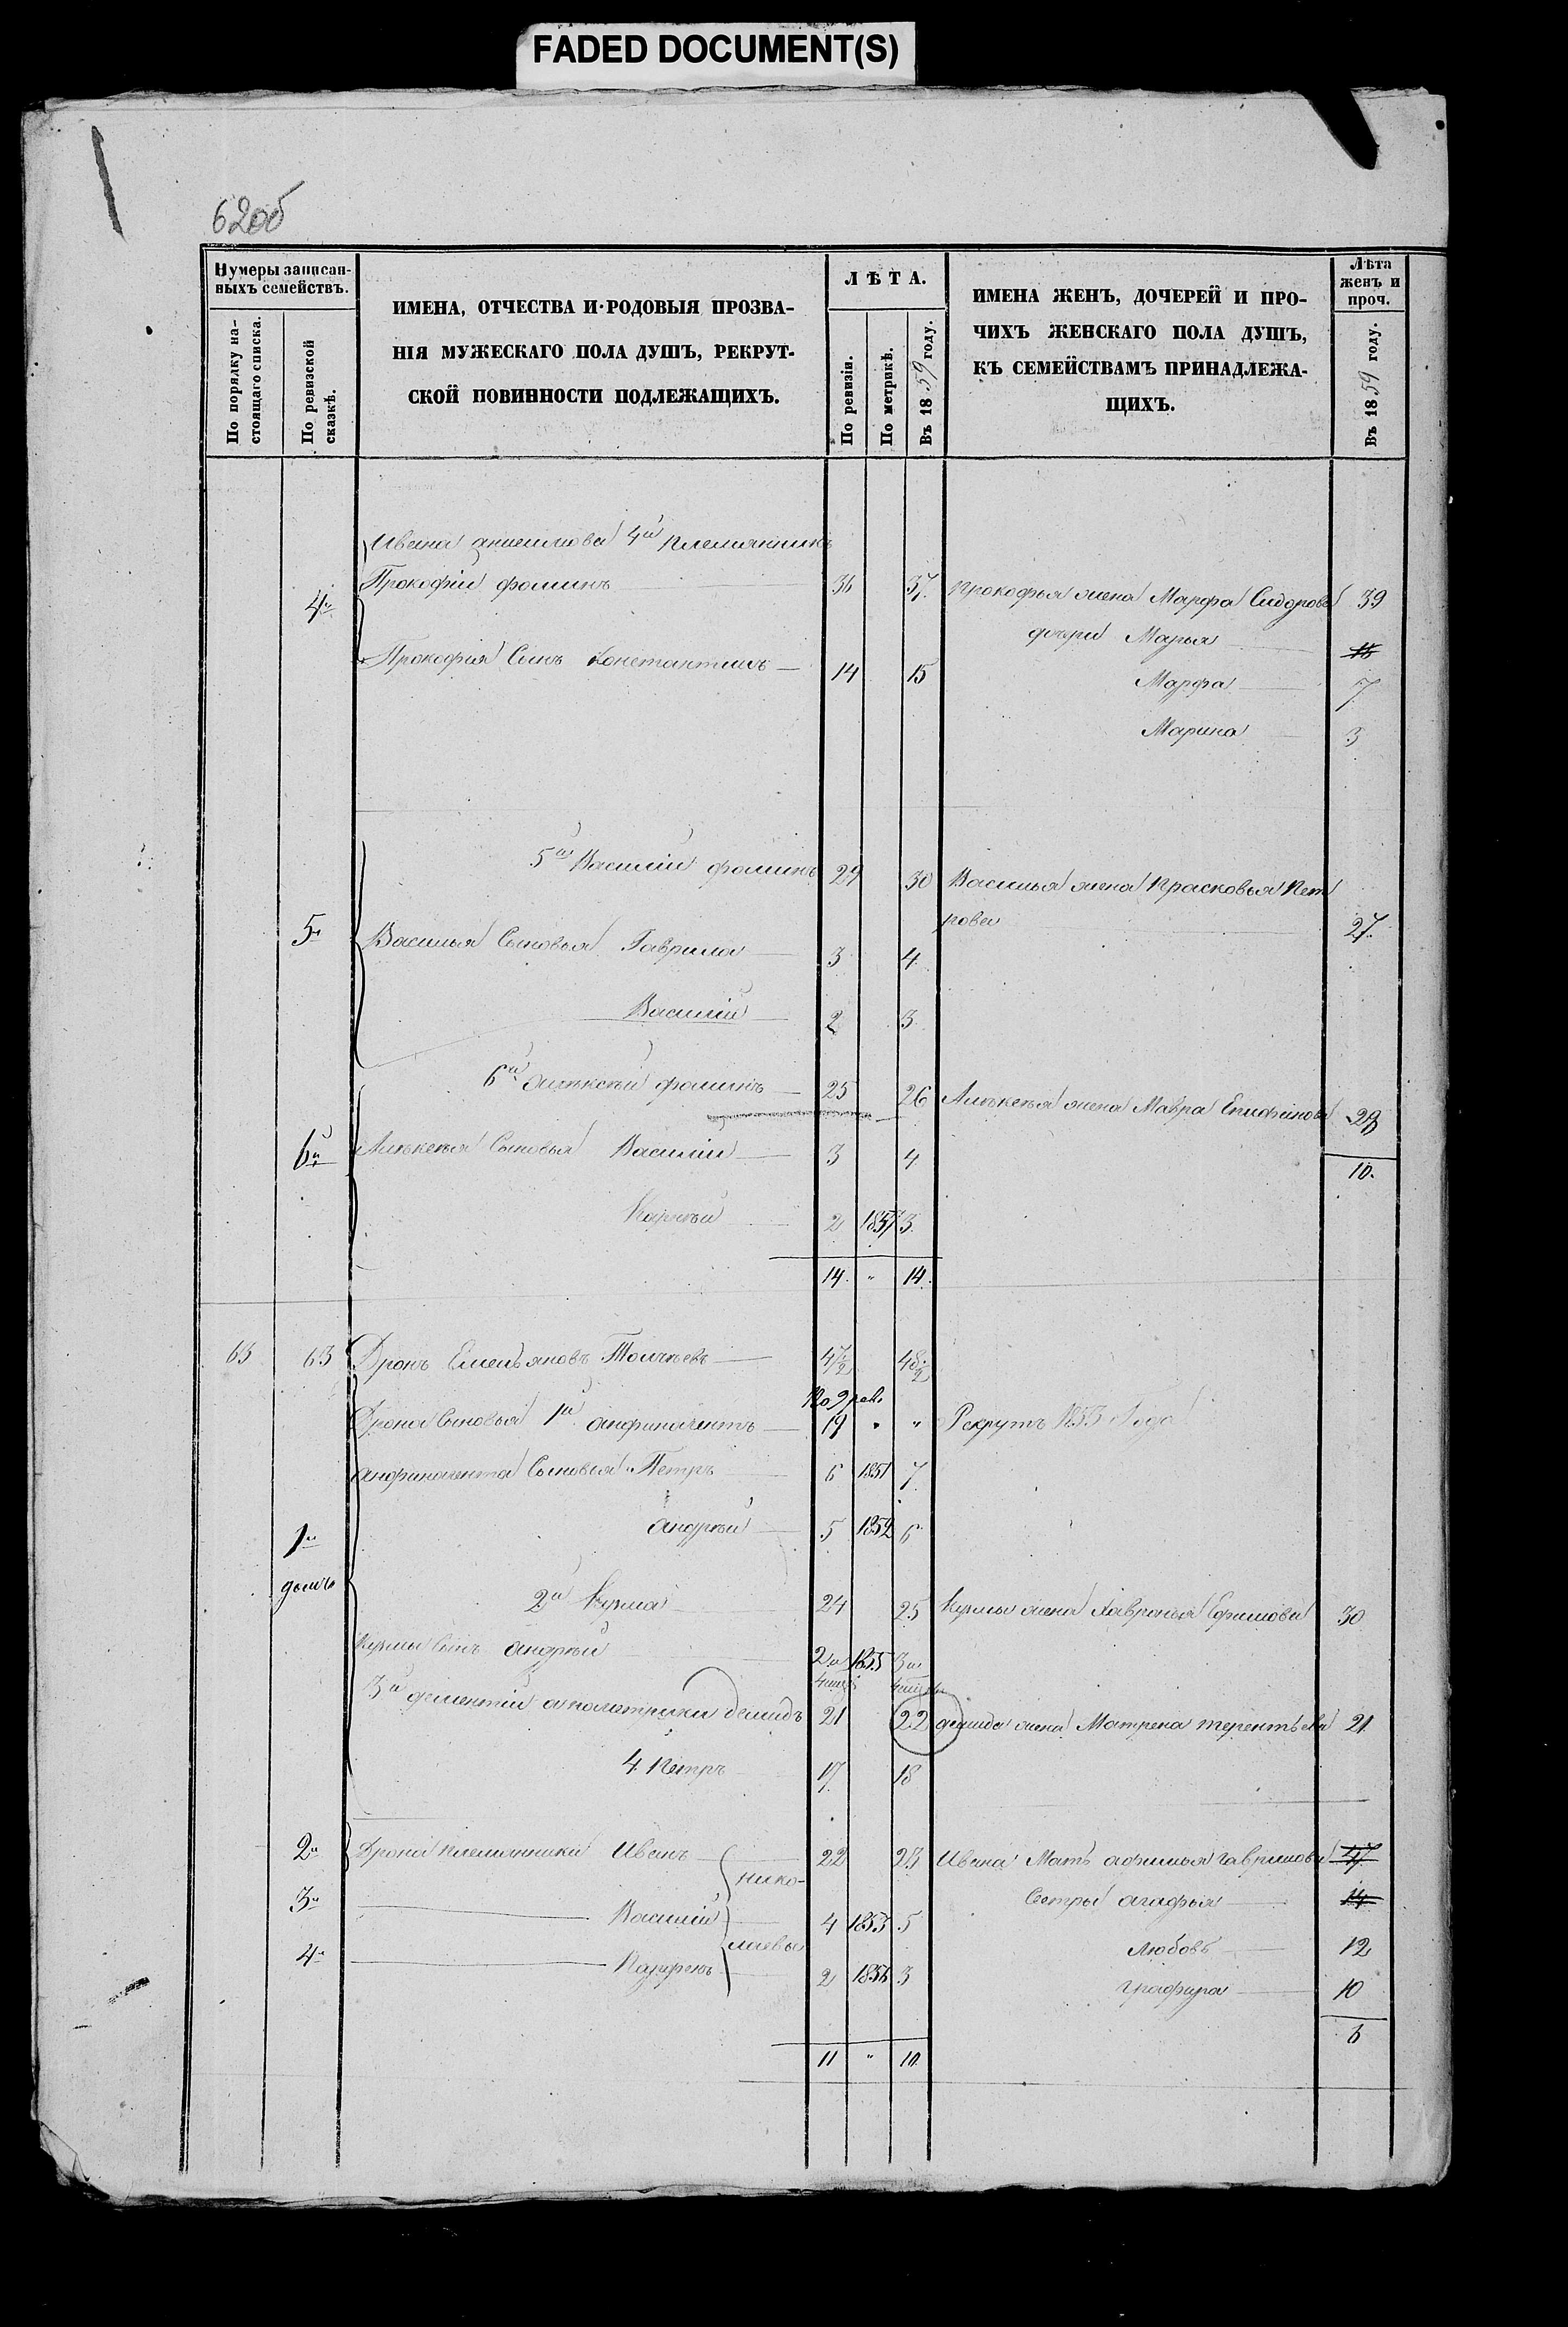 FADED DOCUMENT(S)
62об
Нумеры записан-
ныхъ семействъ.
По порядку на-
стоящаго списка.
По ревизской
сказкѣ.
ИМЕНА, ОТЧЕСТВА И РОДОВЫЯ ПРОЗВА-
НІЯ МУЖЕСКАГО ПОЛА ДУШЪ, РЕКРУТ-
СКОЙ ПОВИННОСТИ ПОДЛЕЖАЩИХЪ.
ЛѢТА.
По ревизіи.
По метрикѣ.
Въ 1859 году.
ИМЕНА ЖЕНЪ, ДОЧЕРЕЙ И ПРО-
ЧИХЪ ЖЕНСКАГО ПОЛА ДУШЪ,
КЪ СЕМЕЙСТВАМЪ ПРИНАДЛЕЖА-
ЩИХЪ.
Лѣта
женъ и
проч.
Въ 1859 году.
Ивана 4й племянникъ
4й Прокофій фоминъ 36 37. Прокофья жена Марфа Сидорова 39
дочери Марья
Прокофія Сынъ Константинъ 14 15
Марфа 7
Марина 3
5й Василій фоминъ 29 30 Василья жена Прасковья Пет
рова 27.
5й Василья Сыновья Гаврила 3 4.
Василій 2 3.
6й Алексѣй фоминъ 25 26 Алексѣя жена Мавра Епифанова 28
6й Алексѣя Сыновья Василій 3 4
10.
Карпѣй 2 1857 3.
14. " 14.
63 63 Дронъ Емельяновъ 47½ 48½
По 9 рев.
Дрона Сыновья 1й 19 " " Рекрутъ 1853 Года
Сыновья Петръ 6 1851 7.
Андрѣй 5 1852 6
1й
домъ
2й Кузма 24 25 Кузмы жена Хавронья Ефимова 30
Кузмы Сынъ Андрѣй 2 1855 3
3й дементій Демидъ 21 22 демида жена Матрена терентьева 21
4 Петръ 17 18
2й Дрона племянники Иванъ 22 23 Ивана Мать афимья гаврилова 47
нико-
Сестры агафья 14
3й Василій 4 1853 5
лаевы
Любовь 12
4й Парфенъ 2 1856 3
графира 10
6
11 " 10.